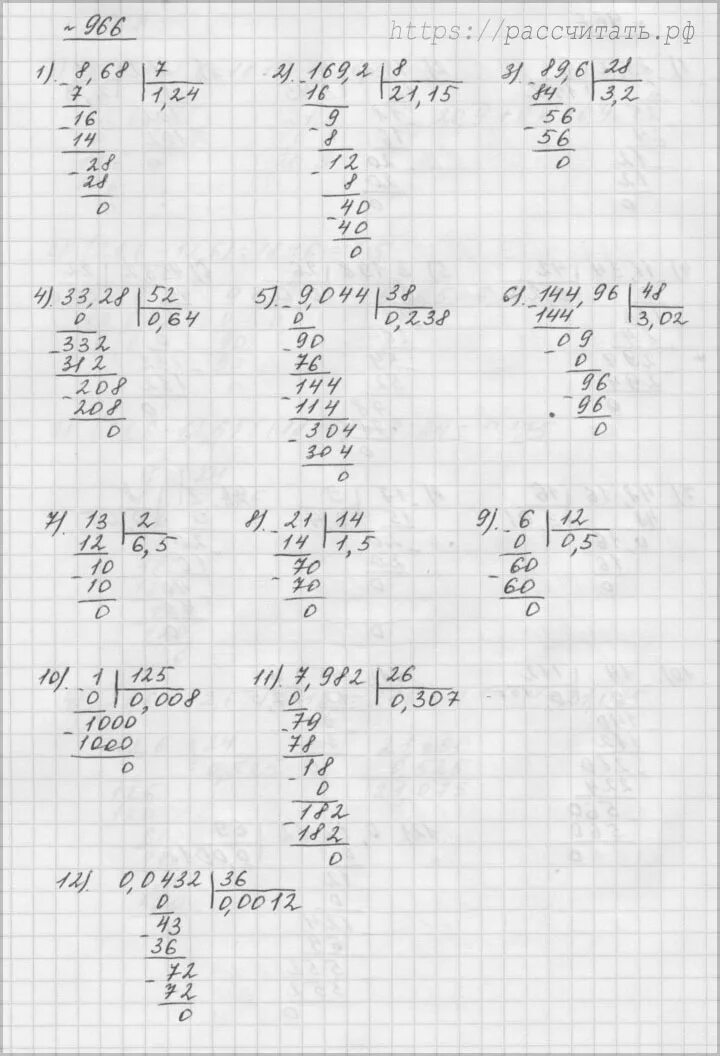 № 966
https://рассчитать.рф
1). 8,68 | 7
7 | 1,24
- 16
14
- 28
28
0
2). - 169,2 | 8
16 | 21,15
- 9
8
- 12
8
- 40
40
0
3). - 89,6 | 28
84 | 3,2
- 56
56
0
4). 33,28 | 52
0 | 0,64
- 332
312
- 208
208
0
5). - 9,044 | 38
0 | 0,238
- 90
76
- 144
114
- 304
304
0
6). - 144,96 | 48
144 | 3,02
- 09
0
- 96
96
0
7). 13 | 2
12 | 6,5
- 10
10
0
8). - 21 | 14
14 | 1,5
- 70
70
0
9). - 6 | 12
0 | 0,5
- 60
60
0
10). - 1 | 125
0 | 0,008
- 1000
1000
0
11). 7,982 | 26
0 | 0,307
- 79
78
- 18
0
- 182
182
0
12). 0,0432 | 36
0 | 0,0012
- 43
36
- 72
72
0